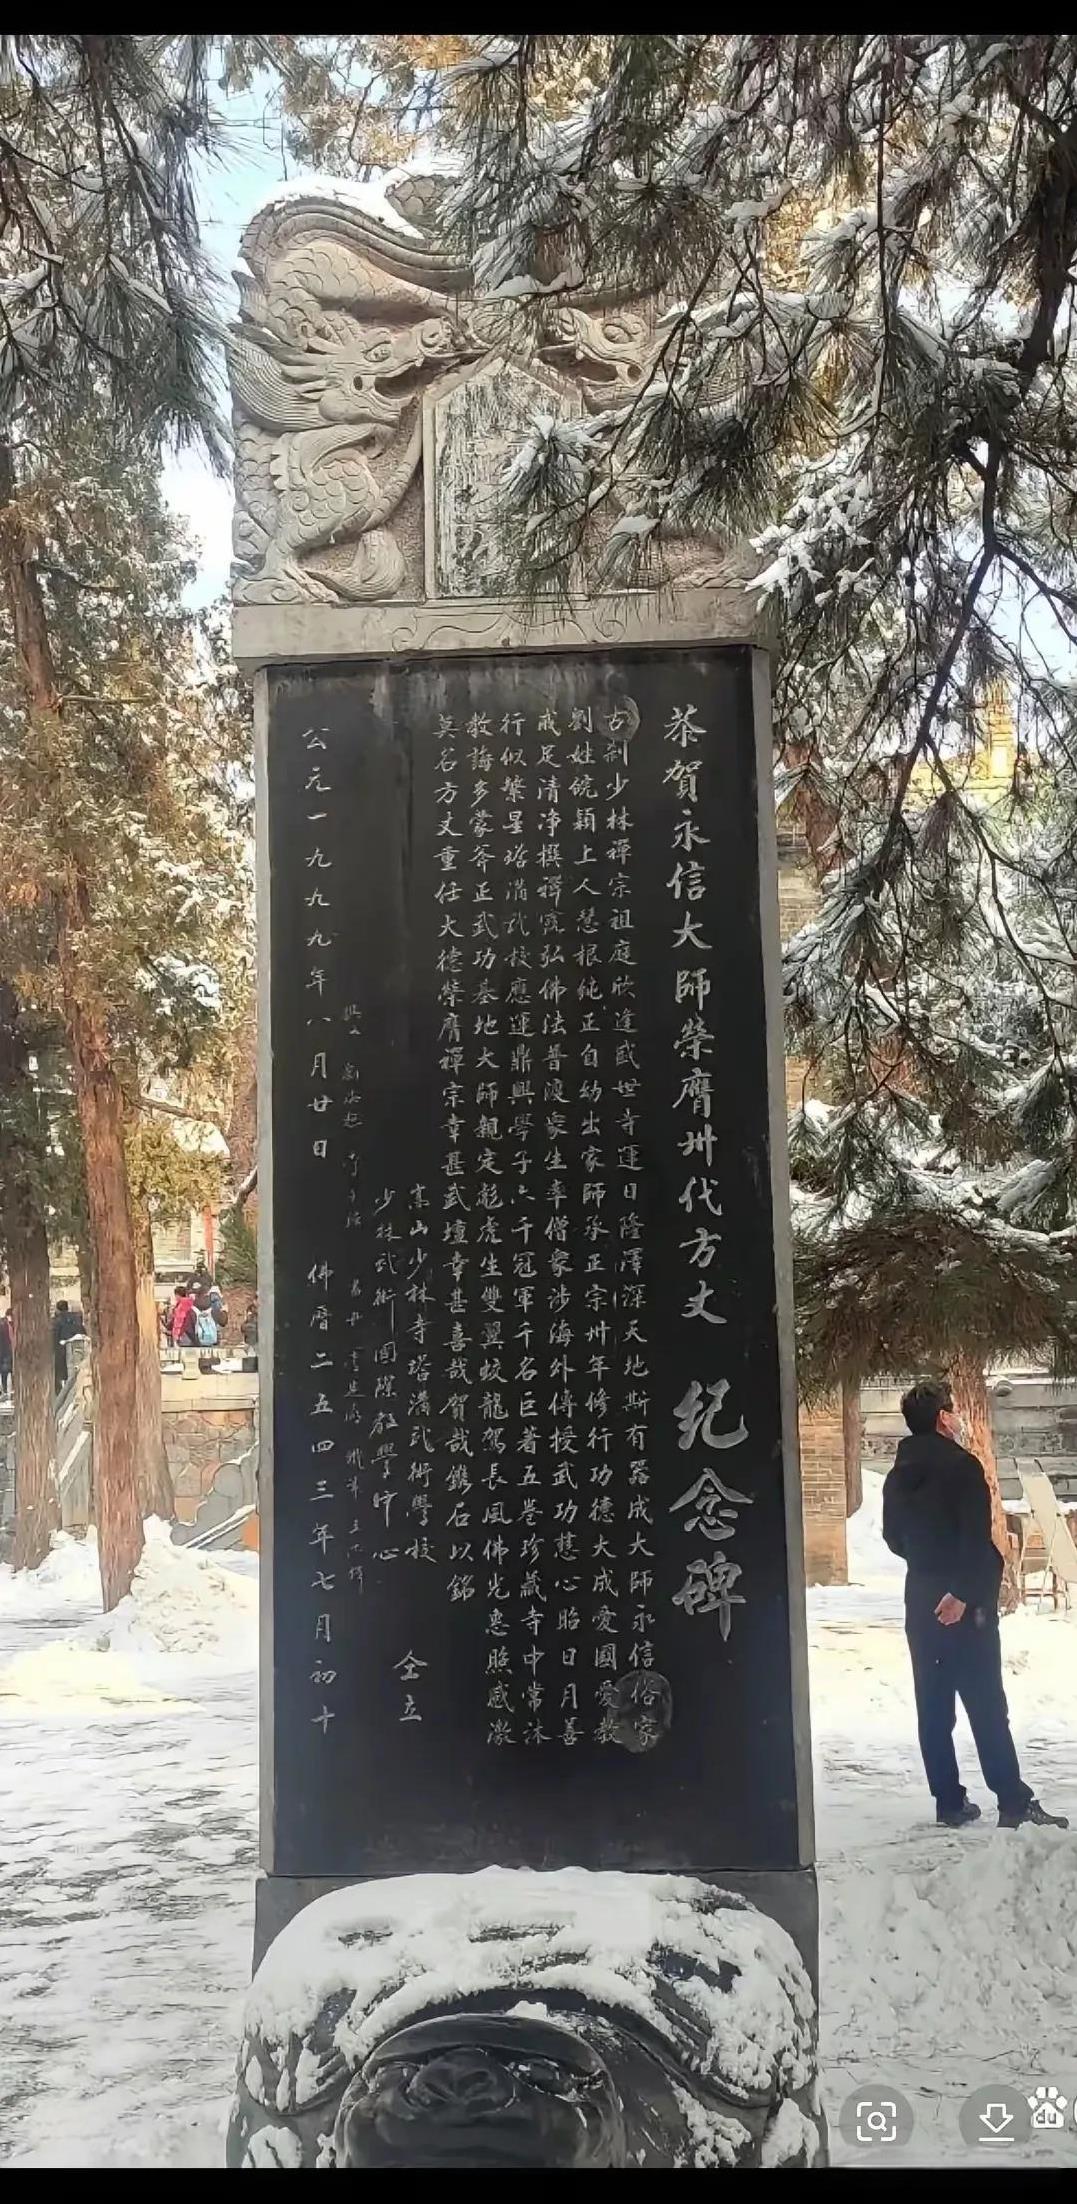 恭賀永信大師榮膺卅代方丈 紀念碑
古刹少林禪宗祖庭欣逢盛世寺運日隆澤深天地斯有器成大師永信俗家
劉姓皖穎上人慧根純正自幼出家師承正宗卅年修行功德大成愛國愛教
戒足清净撰禪露弘佛法普渡衆生率僧衆涉海外傳授武功慈心昭日月善
行似繁星塔溝武校應運鼎興學子六千冠軍千名巨著五卷珍藏寺中常沐
教誨多蒙斧正武功基地大師親定彪虎生雙翼蛟龍駕長風佛光惠照感激
莫名方丈重任大德榮膺禪宗幸甚武壇幸甚喜哉賀哉鐫石以銘
嵩山少林寺塔溝武術學校
少林武術國際教學中心
仝立
公元一九九九年八月廿日 佛曆二五四三年七月初十
du